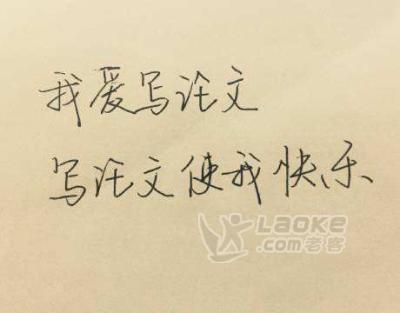 我爱写论文
写论文使我快乐
LAOKE
.com老客